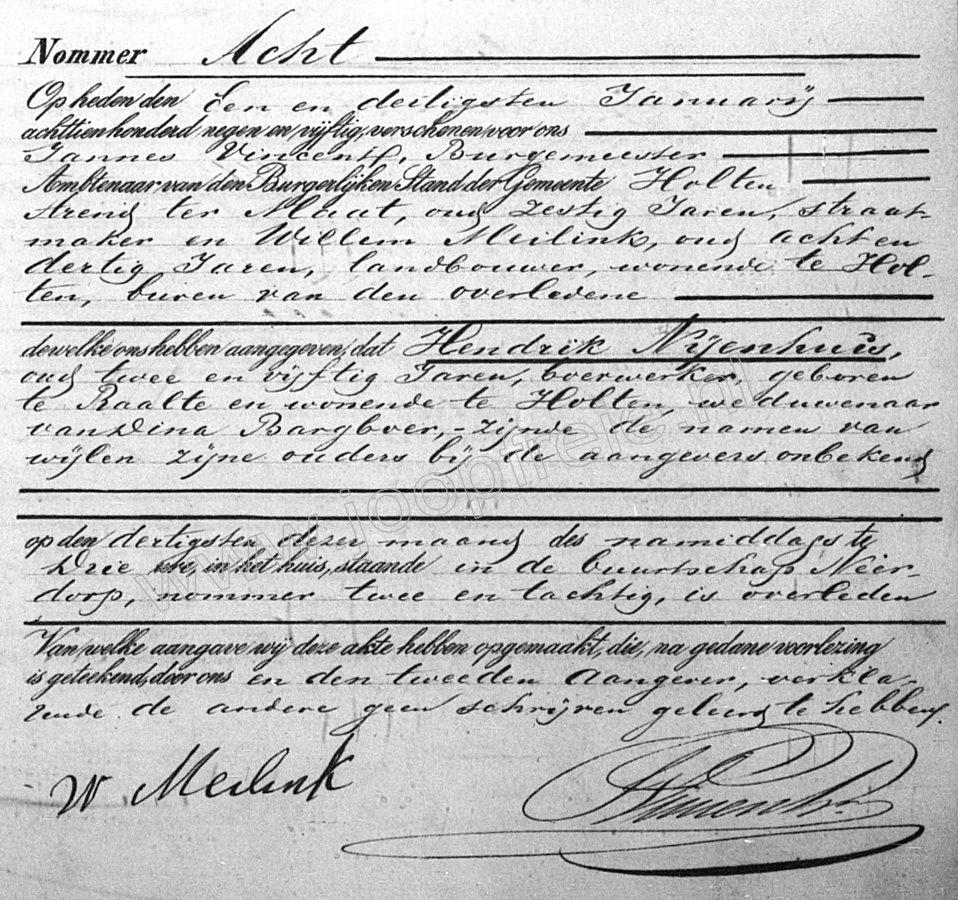 Nommer Acht
Op heden den Een en dertigsten Januarij
achttienhonderd negen en vijftig, verschenen voor ons
Jannes Vincent, Burgemeester
Ambtenaar van den Burgerlijken Stand der Gemeente Holten
Arend ter Maat, oud zestig Jaren, straat-
maker en Willem Meilink, oud acht en
dertig Jaren, landbouwer, wonende te Hol-
ten, buren van den overledene
dewelke ons hebben aangegeven, dat Hendrik Nijenhuis,
oud twee en vijftig Jaren, boerwerker, geboren
te Raalte en wonende te Holten, weduwenaar
van Dina Bargboer, - zijnde de namen van
wijlen zijne ouders bij de aangevers onbekend
op den dertigsten dezer maand des namiddags te
Drie ure, in het huis, staande in de buurtschap Neer-
dorp, nommer twee en tachtig, is overleden
Van welke aangave wij deze akte hebben opgemaakt, die, na gedane voorlezing
is geteekend, door ons en den tweeden aangever, verkla-
rende de andere geen schrijven geleerd te hebben.
W Meilink
JVincent
www.joopfreic.nl